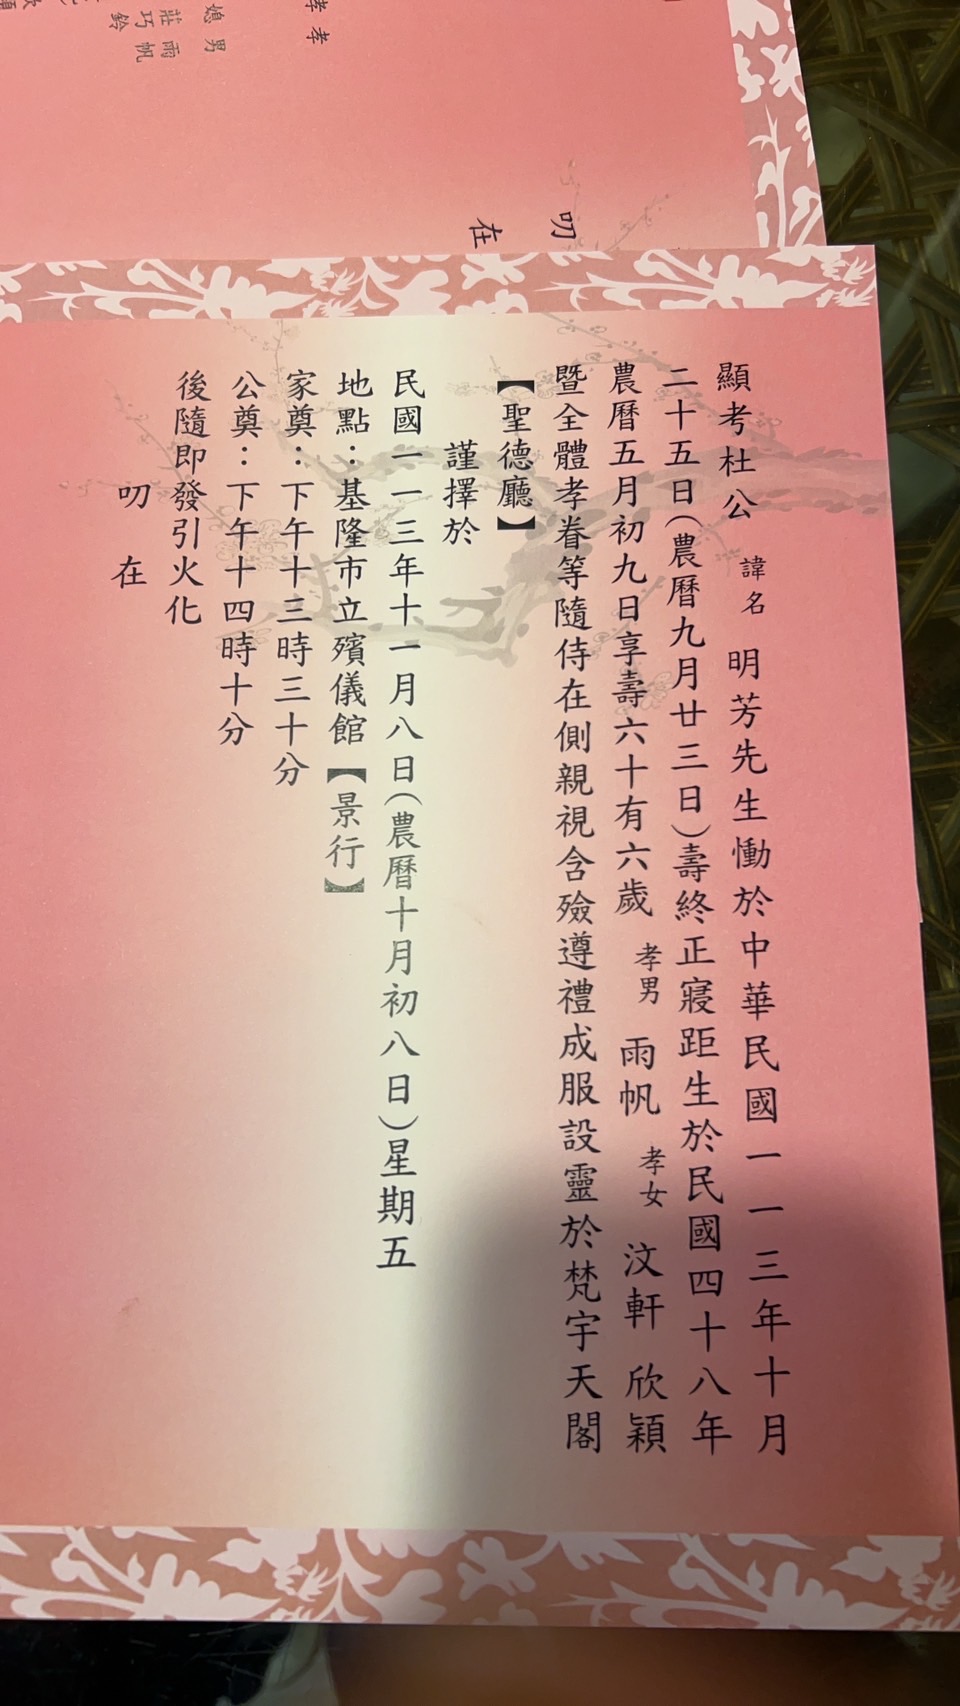 顯考杜公 諱名 明芳先生慟於中華民國一一三年十月
二十五日(農曆九月廿三日)壽終正寢距生於民國四十八年
農曆五月初九日享壽六十有六歲 孝男 雨帆 孝女 汶軒 欣穎
暨全體孝眷等隨侍在側親視含殮遵禮成服設靈於梵宇天閣
【聖德廳】
謹擇於
民國一一三年十一月八日(農曆十月初八日)星期五
地點：基隆市立殯儀館【景行】
家奠：下午十三時三十分
公奠：下午十四時十分
後隨即發引火化
叨 在
叨
在
孝 孝
媳 男
莊 雨
巧 帆
鈴